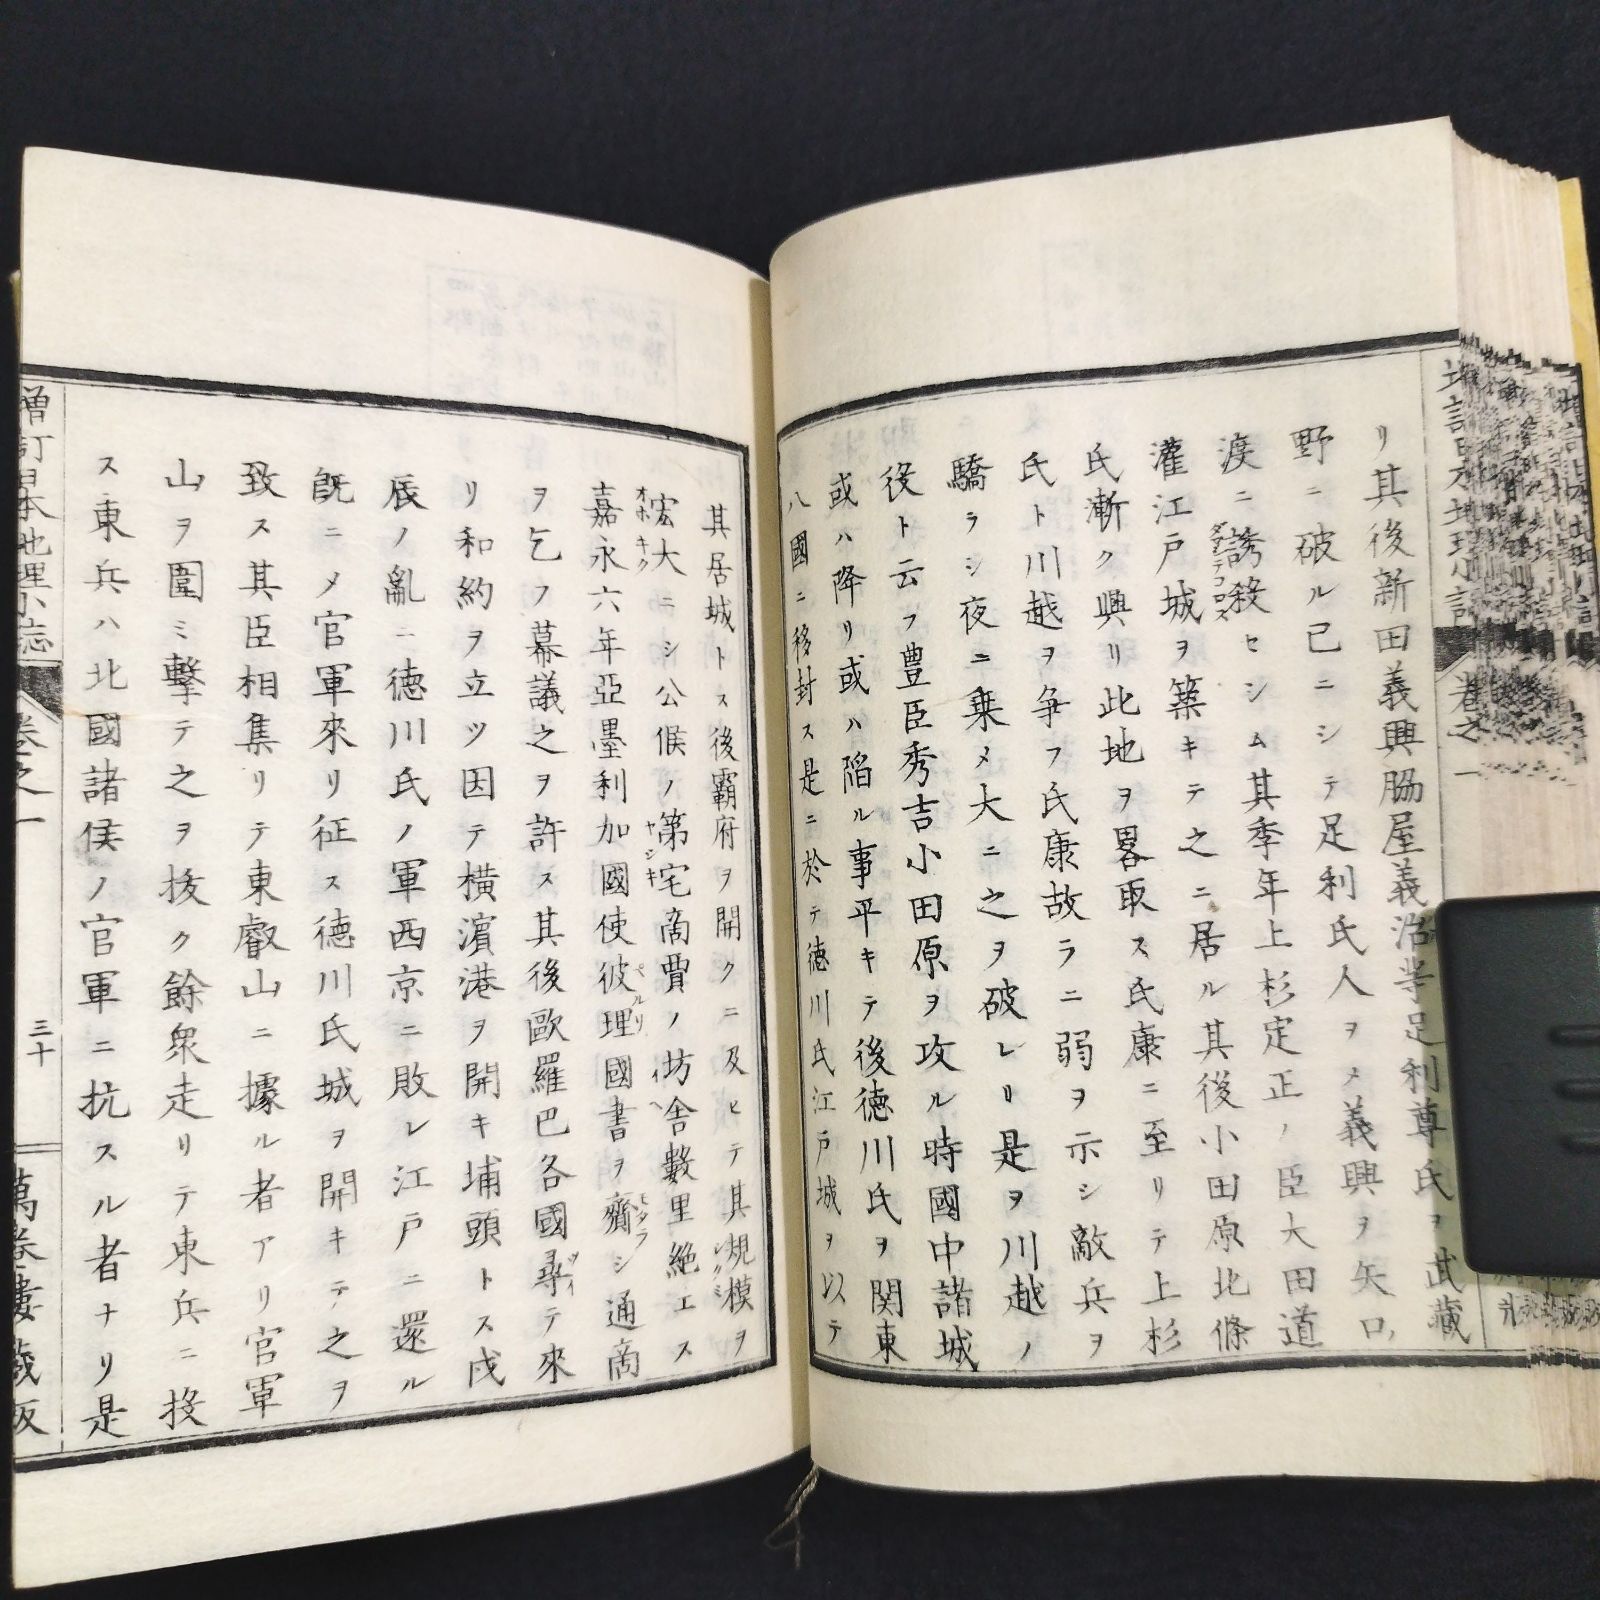 リ其後新田義興脇屋義治等足利尊氏ヲ武藏
野ニ破ル已ニシテ足利氏人ヲメ義興ヲ矢口ノ
渡ニ誘殺セシム其季年上杉定正ノ臣大田道
灌江戸城ヲ築キテ之ニ居ル其後小田原北條
氏漸ク興リ此地ヲ畧取ス氏康ニ至リテ上杉
氏ト川越ヲ爭フ氏康故ラニ弱ヲ示シ敵兵ヲ
驕ラシ夜ニ乗メ大ニ之ヲ破レリ是ヲ川越ノ
役ト云フ豊臣秀吉小田原ヲ攻ル時國中諸城
或ハ降リ或ハ陷ル事平キテ後徳川氏ヲ関東
八國ニ移封ス是ニ於テ徳川氏江戸城ヲ以テ
其居城トス後霸府ヲ開クニ及ヒテ其規模ヲ
宏大ニシ公侯ノ第宅商賈ノ坊舎數里絶エス
嘉永六年亞墨利加國使彼理國書ヲ齎シ通商
ヲ乞フ幕議之ヲ許ス其後歐羅巴各國尋テ來
リ和約ヲ立ツ因テ横濵港ヲ開キ埔頭トス戊
辰ノ亂ニ徳川氏ノ軍西京ニ敗レ江戸ニ還ル
既ニメ官軍來リ征ス徳川氏城ヲ開キテ之ヲ
致ス其臣相集リテ東叡山ニ據ル者アリ官軍
山ヲ圍ミ撃テ之ヲ拔ク餘衆走リテ東兵ニ投
ス東兵ハ北國諸侯ノ官軍ニ抗スル者ナリ是
増訂日本地理小志 卷之一 三十 萬巻樓藏版